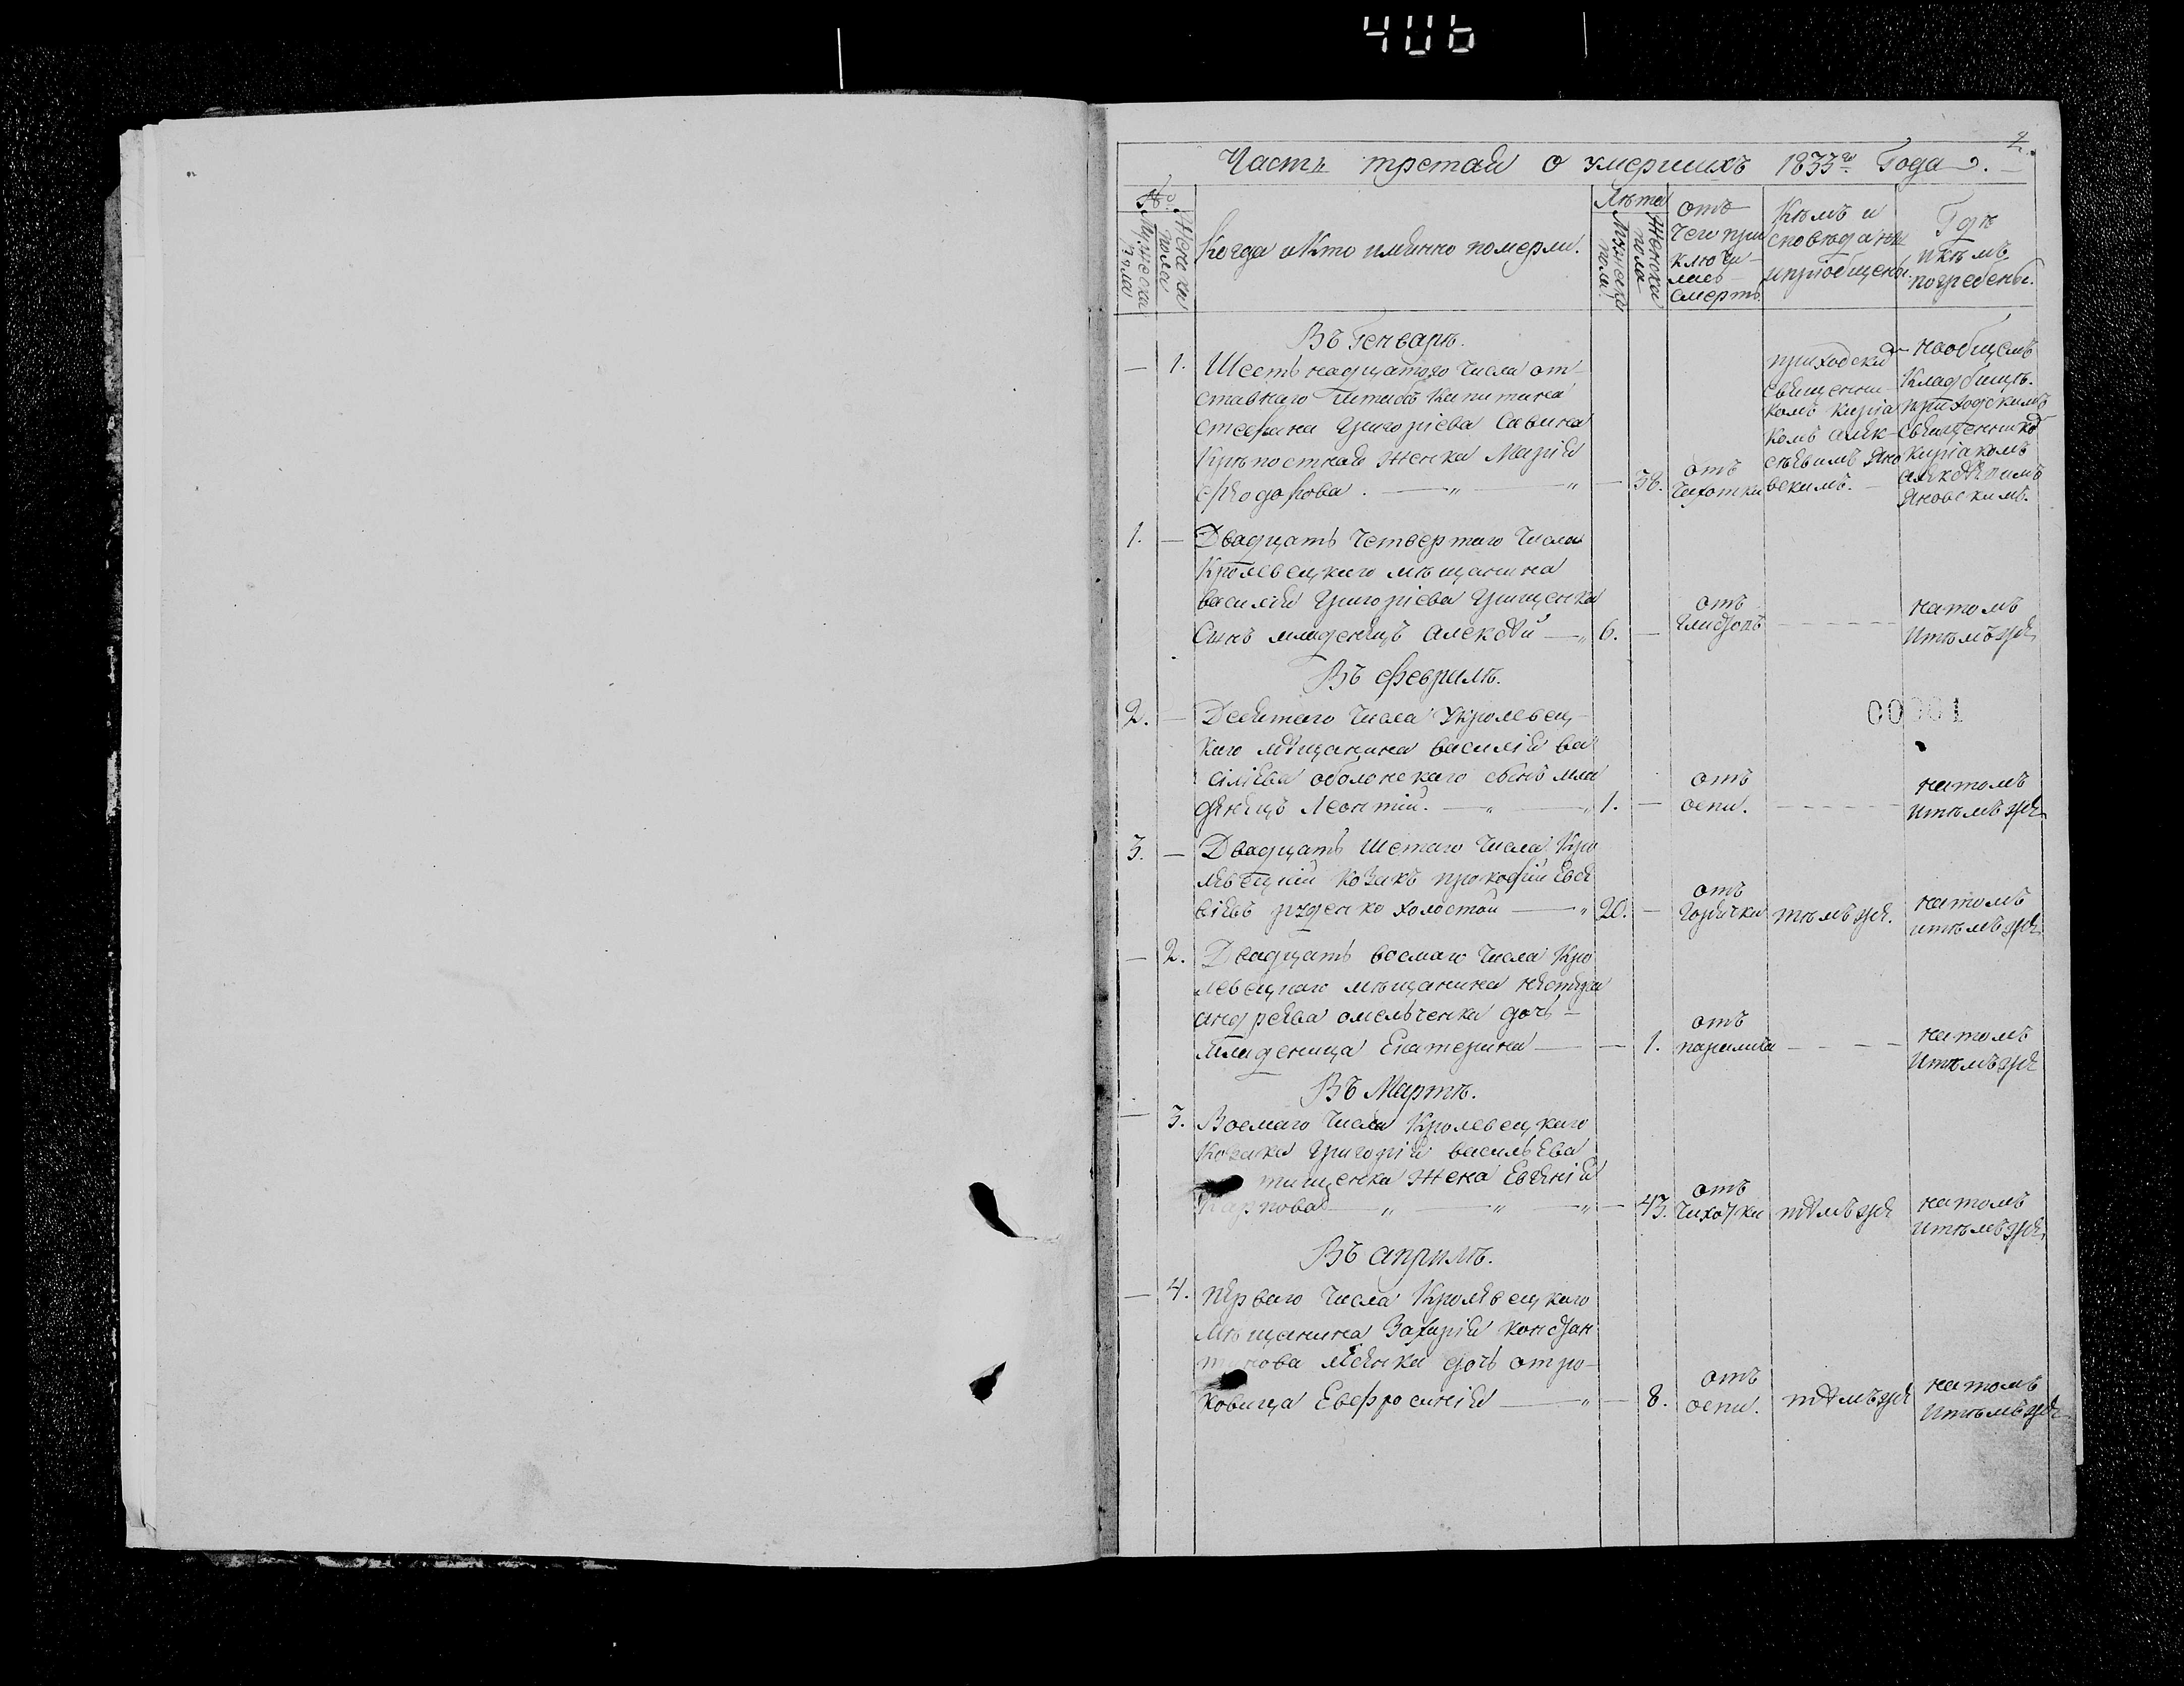 406
2
Часть третая о умершихъ 1833го Года.
№
Мужеска пола
Женска пола
Когда и Кто имянно померли.
Лѣта
Мужеска пола
Женска пола
отъ
чего при
ключи-
лась
смерть
Кѣмъ и
сповѣданы
ипріобщены.
Гдѣ
икѣмъ
погребены.
Въ Генварѣ.
— 1. Шестьнадцатого числа от-
ставнаго Штабъ Капитана
стефана Григоріева Савича
Крѣпостная женка Марія
Ѳеодорова. — 38.
отъ
чихотки
приходски
священни-
комъ Киріа
комъ алек-
сѣевимъ Яно
вскимъ. —
наобщемъ
Кладбищѣ.
приходскимъ
священникомъ
киріакомъ
Яновскимъ.
1. — Двадцать Четвертаго Числа
Кролевецкаго мѣщанина
василія Григоріева Грищенка
Сынъ младенецъ алексѣй — 6. —
отъ
натомъ
Итѣмъ же
Въ февралѣ.
2. — Десятаго Числа Укролевец-
Каго мѣщанина василія ва
сіліева оболонскаго сынъ мла
денецъ Леонтій. — 1. —
отъ
оспи.
натомъ
Итѣмъ же
00001
3. — Двадцать Шестаго Числа Кро
левецкій Козакъ прокофій Евсе
віевъ руденко холостой — 20. —
отъ
Горячки
тѣмъ же.
натомъ
итѣмъ же
— 2. Двадцать восмаго Числа Кро
левецкаго мѣщанина
андреева омельченка дочь —
Младеница Екатерина — — 1.
отъ
паралича
натомъ
Итѣмъ же
Въ Мартѣ.
— 3. Восмаго Числа Кролевецкаго
Козака Григорія васильева
тищенка Жена Евгенія
Карпова — 43.
отъ
Чихотки
тѣмъ же
натомъ
итѣмъ же
Въ априлѣ.
— 4. перваго Числа Кролевецкаго
Мѣщанина Захарія констан
тинова дочь отро-
ковица Евфросинія — 8.
отъ
оспи.
тѣмъ же
натомъ
Итѣмъ же